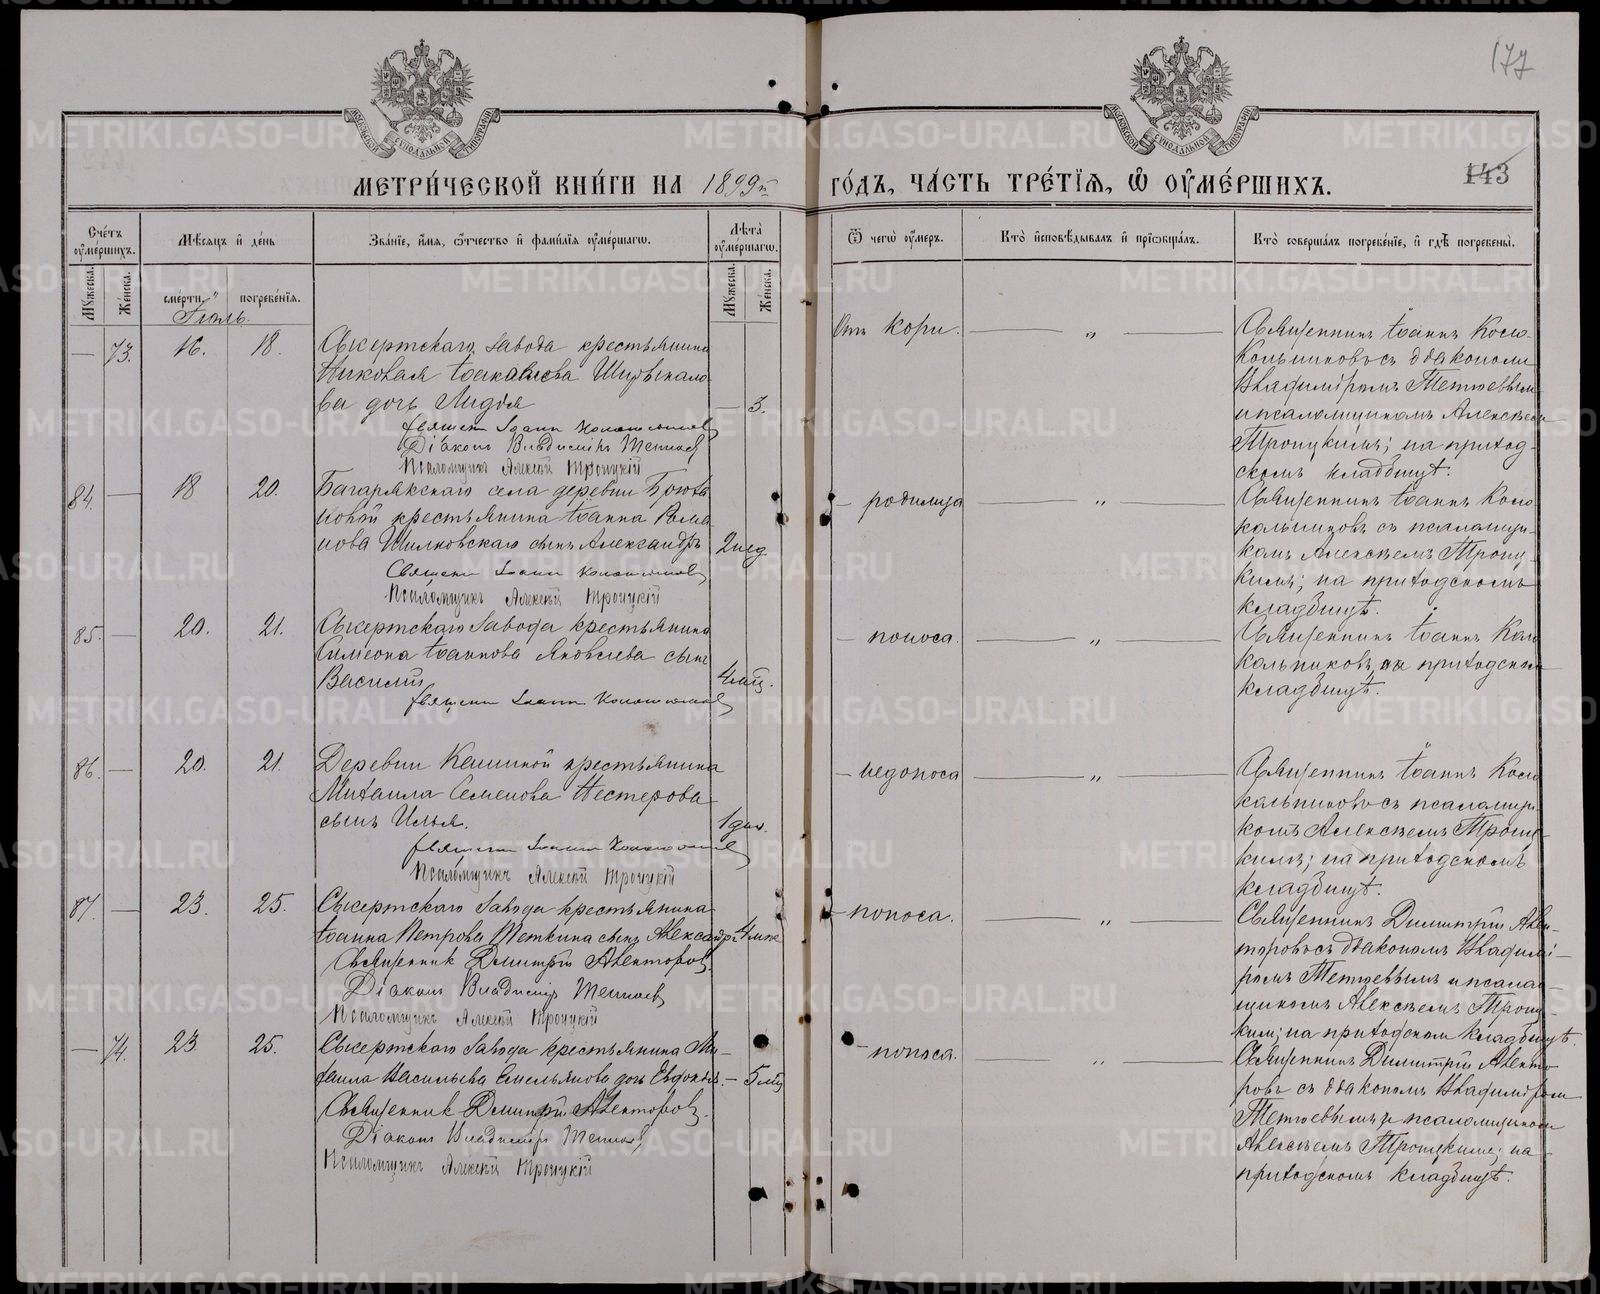 177
МОСКОВСКОЙ СѴНОДАЛЬНОЙ ТИПОГРАФІИ
МОСКОВСКОЙ СѴНОДАЛЬНОЙ ТИПОГРАФІИ
МЕТРИ́ЧЕСКОЙ КНИ́ГИ НА 1899й ГО́ДЪ, ЧА́СТЬ ТРЕ́ТІѦ, Ѡ҆ ОУ҆МЕ́РШИХЪ.
143
Сче́тъ оу҆ме́ршихъ.
Мꙋжеска.
Же́нска.
Мѣ́сяцъ и҆ де́нь
сме́рти.
погребе́нїѧ.
Зва́нїе, и҆́мѧ, ѻ҆́тчество и҆ фами́лїѧ оу҆ме́ршагѡ.
Лѣ́та оу҆ме́ршагѡ.
Мꙋжеска.
Же́нска.
Ѿ чегѡ̀ оу҆́меръ.
Кто̀ и҆сповѣ́дывалъ и҆ прїѡбща́лъ.
Кто̀ соверша́лъ погребе́нїе, и҆ гдѣ̀ погребены̀.
Іюль.
— 73. 16. 18.
Сысертскаго Завода крестьянина
Николая
дочь Лидія
— 3.
Священ. Іоаннъ Колокольников
Діаконъ Владиміръ Тетюев
Псаломщикъ Алексѣй Троицкій
Отъ кори. — „ —
Священникъ Іоаннъ Коло-
кольниковъ съ діакономъ
Владиміромъ Тетюевымъ
и псаломщикомъ Алексѣем
Троицкимъ; на приход-
скомъ кладбищѣ.
84. — 18 20.
Багарякскаго села деревни
крестьянина Іоанна Рома-
нова Шилковскаго сынъ Александръ
2 нед.
Священ. Іоаннъ Колокольников
Псаломщикъ Алексѣй Троицкій
— родимца — „ —
Священникъ Іоаннъ Коло-
кольниковъ съ псаломщи-
комъ Алексѣемъ Троиц-
кимъ; на приходскомъ
кладбищѣ.
85. — 20. 21.
Сысертскаго Завода крестьянина
Симеона Іоаннова Яковлева сынъ
Василій
4 мѣс.
Священ. Іоаннъ Колокольников
— поноса. — „ —
Священникъ Іоаннъ Коло-
кольниковъ, на приходском
кладбищѣ.
86. — 20. 21.
Деревни крестьянина
Михаила Семенова Нестерова
сынъ Илья.
1 дн.
Священ. Іоаннъ Колокольников
Псаломщикъ Алексѣй Троицкій
— недоноса — „ —
Священникъ Іоаннъ Коло-
кольниковъ съ псаломщи-
комъ Алексѣемъ Троиц-
кимъ; на приходскомъ
кладбищѣ.
87. — 23. 25.
Сысертскаго Завода крестьянина
Іоанна Петрова Теткина сынъ Александръ
Священник Димитрій Авенторов
Діаконъ Владиміръ Тетюев
Псаломщикъ Алексѣй Троицкій
— поноса. — „ —
Священникъ Димитрій Авен-
торовъ съ діакономъ Владимі-
ромъ Тетюевымъ и псалом-
щикомъ Алексѣемъ Троиц-
ким; на приходском кладбищѣ.
— 74. 23 25.
Сысертскаго Завода крестьянина Ми-
хаила Васильева Емельянова дочь Евдокія.
— 5 мѣс
Священник Димитрій Авенторов.
Діаконъ Владиміръ Тетюев
Псаломщикъ Алексѣй Троицкій
— поноса. — „ —
Священникъ Димитрій Авенто-
ровъ съ діакономъ Владиміром
Тетюевымъ и псаломщиком
Алексѣемъ Троицкимъ; на
приходскомъ кладбищѣ.
METRIKI.GASO-URAL.RU